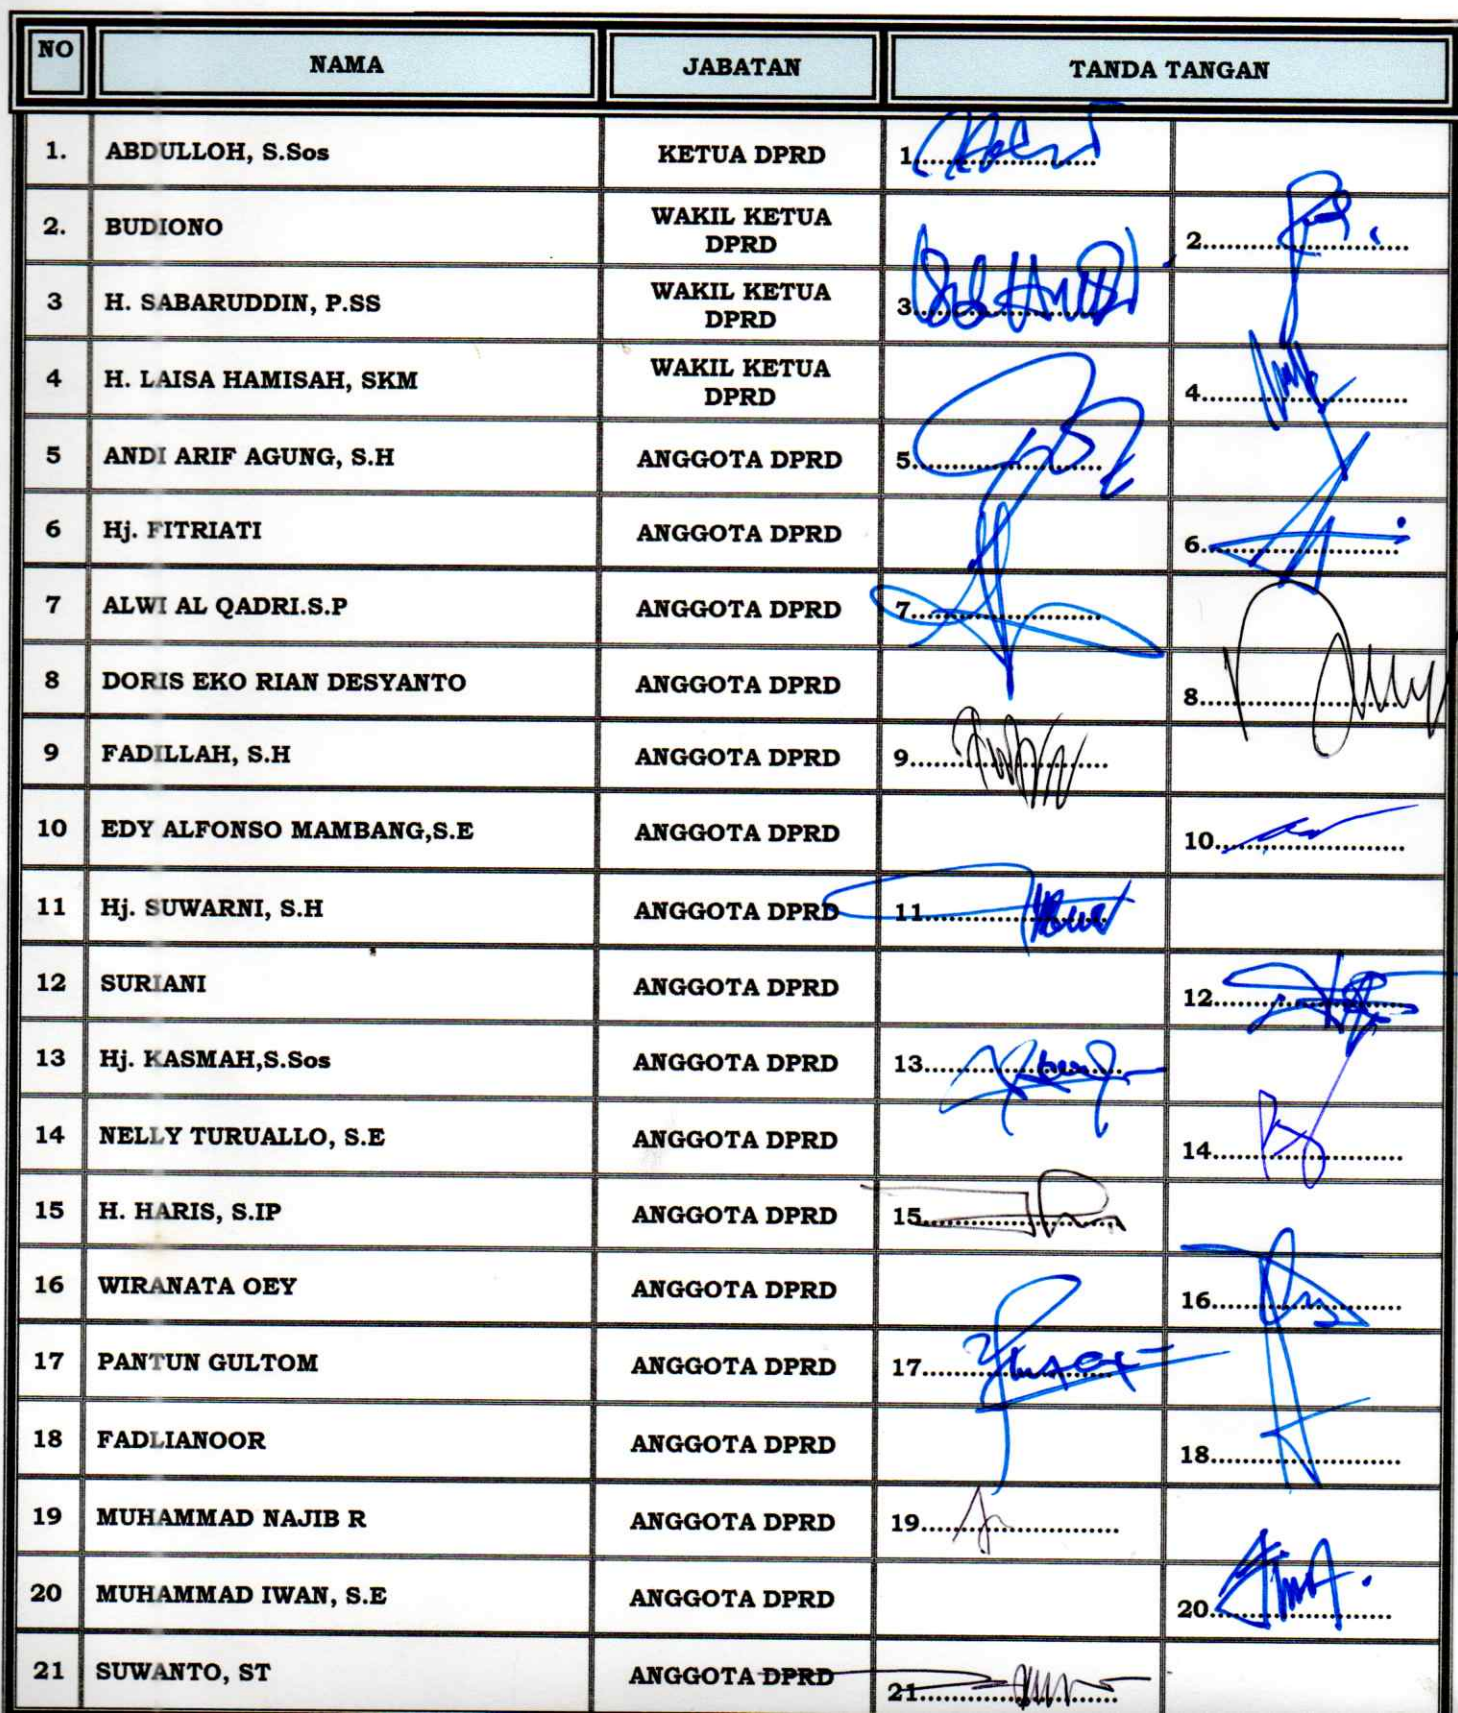 NO NAMA JABATAN TANDA TANGAN
1. ABDULLOH, S.Sos KETUA DPRD 1.....................
2. BUDIONO WAKIL KETUA DPRD 2.....................
3 H. SABARUDDIN, P.SS WAKIL KETUA DPRD 3.....................
4 H. LAISA HAMISAH, SKM WAKIL KETUA DPRD 4.....................
5 ANDI ARIF AGUNG, S.H ANGGOTA DPRD 5.....................
6 Hj. FITRIATI ANGGOTA DPRD 6.....................
7 ALWI AL QADRI.S.P ANGGOTA DPRD 7.....................
8 DORIS EKO RIAN DESYANTO ANGGOTA DPRD 8.....................
9 FADILLAH, S.H ANGGOTA DPRD 9.....................
10 EDY ALFONSO MAMBANG,S.E ANGGOTA DPRD 10.....................
11 Hj. SUWARNI, S.H ANGGOTA DPRD 11.....................
12 SURIANI ANGGOTA DPRD 12.....................
13 Hj. KASMAH,S.Sos ANGGOTA DPRD 13.....................
14 NELLY TURUALLO, S.E ANGGOTA DPRD 14.....................
15 H. HARIS, S.IP ANGGOTA DPRD 15.....................
16 WIRANATA OEY ANGGOTA DPRD 16.....................
17 PANTUN GULTOM ANGGOTA DPRD 17.....................
18 FADLIANOOR ANGGOTA DPRD 18.....................
19 MUHAMMAD NAJIB R ANGGOTA DPRD 19.....................
20 MUHAMMAD IWAN, S.E ANGGOTA DPRD 20.....................
21 SUWANTO, ST ANGGOTA DPRD 21.....................